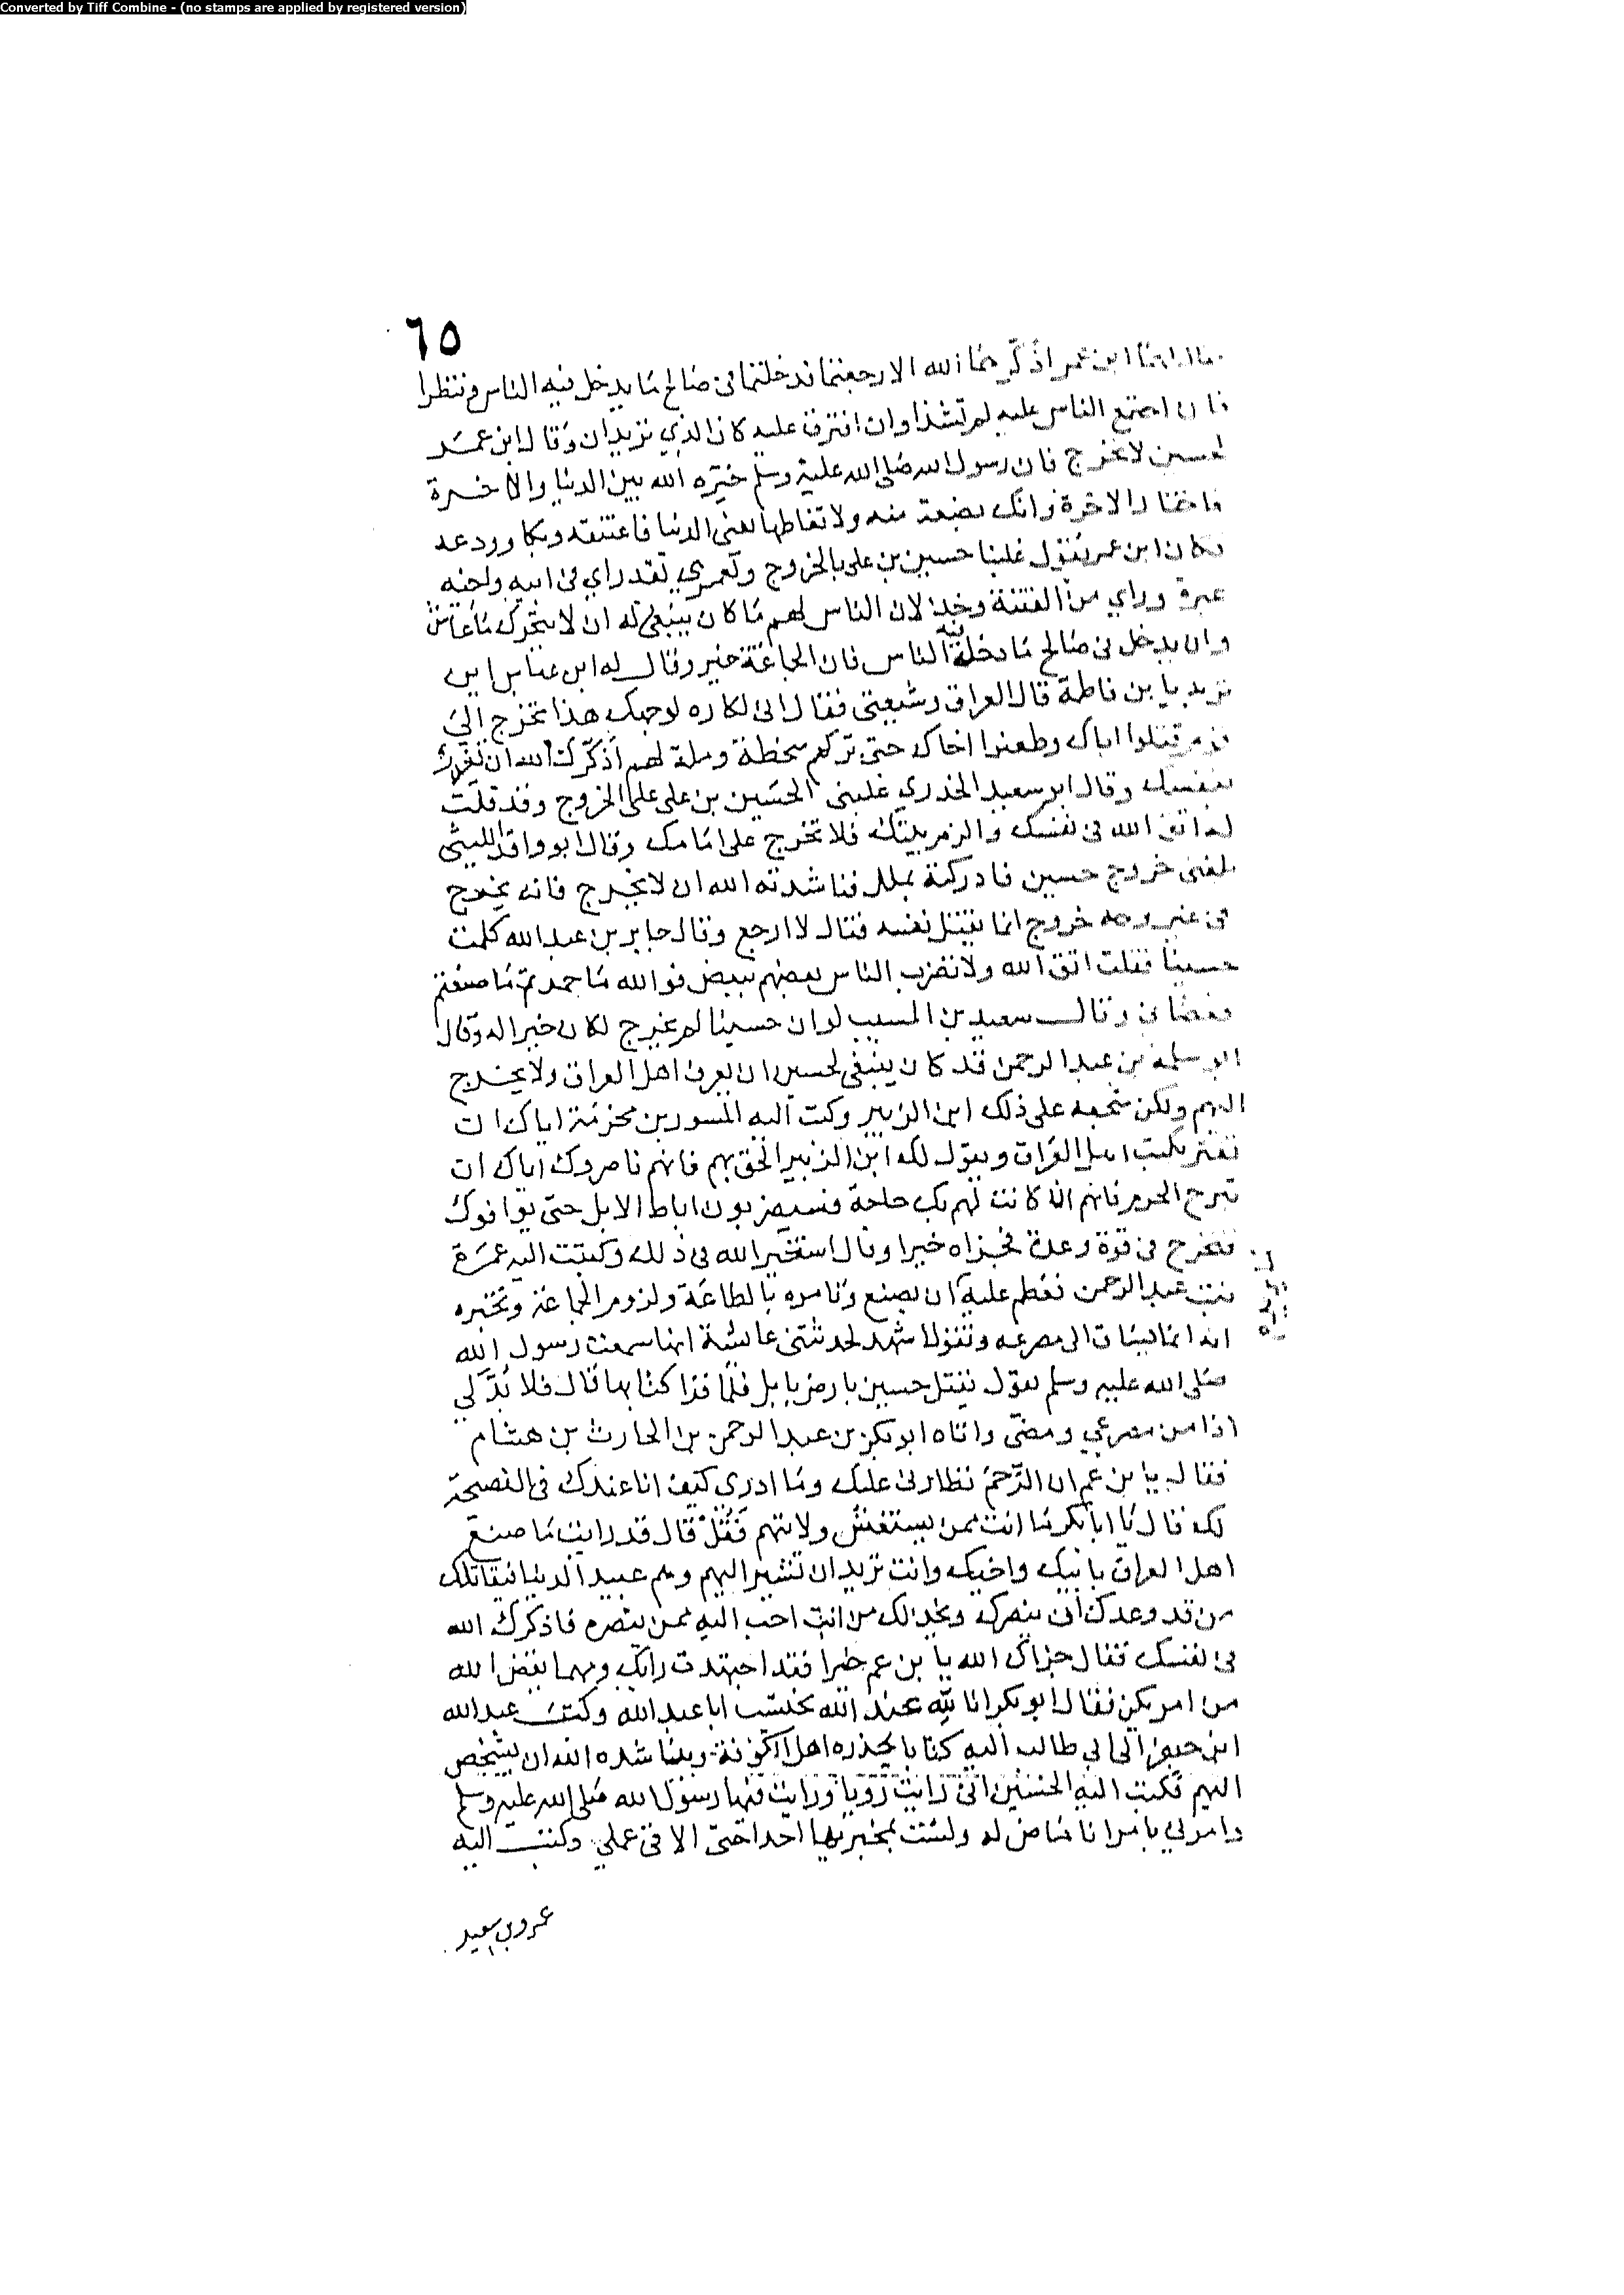 Converted by Tiff Combine - (no stamps are applied by registered version)
٦٥
ابن عمر اذكركما الله الا رجعتما فدخلتما فى صالح ما يدخل فيه الناس وننظرا
فان اجتمع الناس عليه لم تشذا وان افترق عليه كان الذي تريدان وقال ابن عمر
لحسين لا تخرج فان رسول الله صلى الله عليه وسلم خيره الله بين الدنيا والاخرة
فاختار الاخرة وانك بضعة منه ولا تعاطها يعنى الدنيا فاعتنقه وبكا وودعه
فكان ابن عمر يقول غلبنا حسين بن على بالخروج ولعمري لقد راي فى ابيه واخيه
عبرة وراي من الفتنة وخذلان الناس لهم ما كان ينبغى له ان لا يتحرك ما عاش
وان يدخل فى صالح ما دخل فيه الناس فان الجماعة خير وقال له ابن عباس اين
تريد يا بن فاطمة قال العراق وشيعتى فقال انى لكاره لوجهك هذا تخرج الى
قوم قتلوا اباك وطعنوا اخاك حتى تركهم سخطة وملة لهم اذكرك الله ان تغرر
بنفسك وقال ابو سعيد الخدري غلبنى الحسين بن على على الخروج وقد قلت
له اتق الله فى نفسك والزم بيتك فلا تخرج على امامك وقال ابو واقد الليثى
بلغنى خروج حسين فادركته بملل فناشدته الله ان لا يخرج فانه يخرج
فى غير وجه خروج انما يقتل نفسه فقال لا ارجع وقال جابر بن عبد الله كلمت
حسينا فقلت اتق الله ولا تضرب الناس بعضهم ببعض فوالله ما حمدتم ما صنعتم
فعصانى وقال سعيد بن المسيب لو ان حسينا لم يخرج لكان خيرا له وقال
ابو سلمة بن عبد الرحمن قد كان ينبغى لحسين ان يعرف اهل العراق ولا يخرج
اليهم ولكن شجعه على ذلك ابن الزبير وكتب اليه المسور بن مخرمة اياك ان
تغتر بكتب اهل العراق ويقول لك ابن الزبير الحق بهم فانهم ناصروك اياك ان
تبرح الحرم فانهم ان كانت لهم بك حاجة فسيضربون اباط الابل حتى يوافوك
فتخرج فى قوة وعدة فجزاه خيرا وقال استخير الله فى ذلك وكتبت اليه عمرة
بنت عبد الرحمن تعظم عليه ان يصنع وتامره بالطاعة ولزوم الجماعة وتخبره
انه انما يساق الى مصرعه وتقول اشهد لحدثتنى عائشة انها سمعت رسول الله
صلى الله عليه وسلم يقول يقتل حسين بارض بابل فلما قرا كتابها قال فلا بد لي
اذا من مصرعي ومضى واتاه ابو بكر بن عبد الرحمن بن الحارث بن هشام
فقال يا بن عم ان الرحم نظارنى عليك وما ادرى كيف انا عندك فى النصيحة
لك قال يا ابا بكر ما انت ممن يستغش ولا يتهم فقل قال قد رايت ما صنع
اهل العراق بابيك واخيك وانت تريد ان تسير اليهم وهم عبيد الدنيا فيقاتلك
من قد وعدك ان ينصرك ويخذلك من انت احب اليه ممن ينصره فاذكرك الله
فى نفسك فقال جزاك الله يا بن عم خيرا فقد اجتهدت رايك ومهما يقض الله
من امر يكن فقال ابو بكر انا لله عند الله نحتسب ابا عبد الله وكتب عبد الله
ابن جعفر بن ابي طالب اليه كتابا يحذره اهل الكوفة ويناشده الله ان يشخص
اليهم فكتب اليه الحسين انى رايت رؤيا ورايت فيها رسول الله صلى الله عليه وسلم
وامرني بامر انا ماض له ولست بمخبر بها احدا حتى الاقى عملي وكتب اليه
عمرو بن سعيد